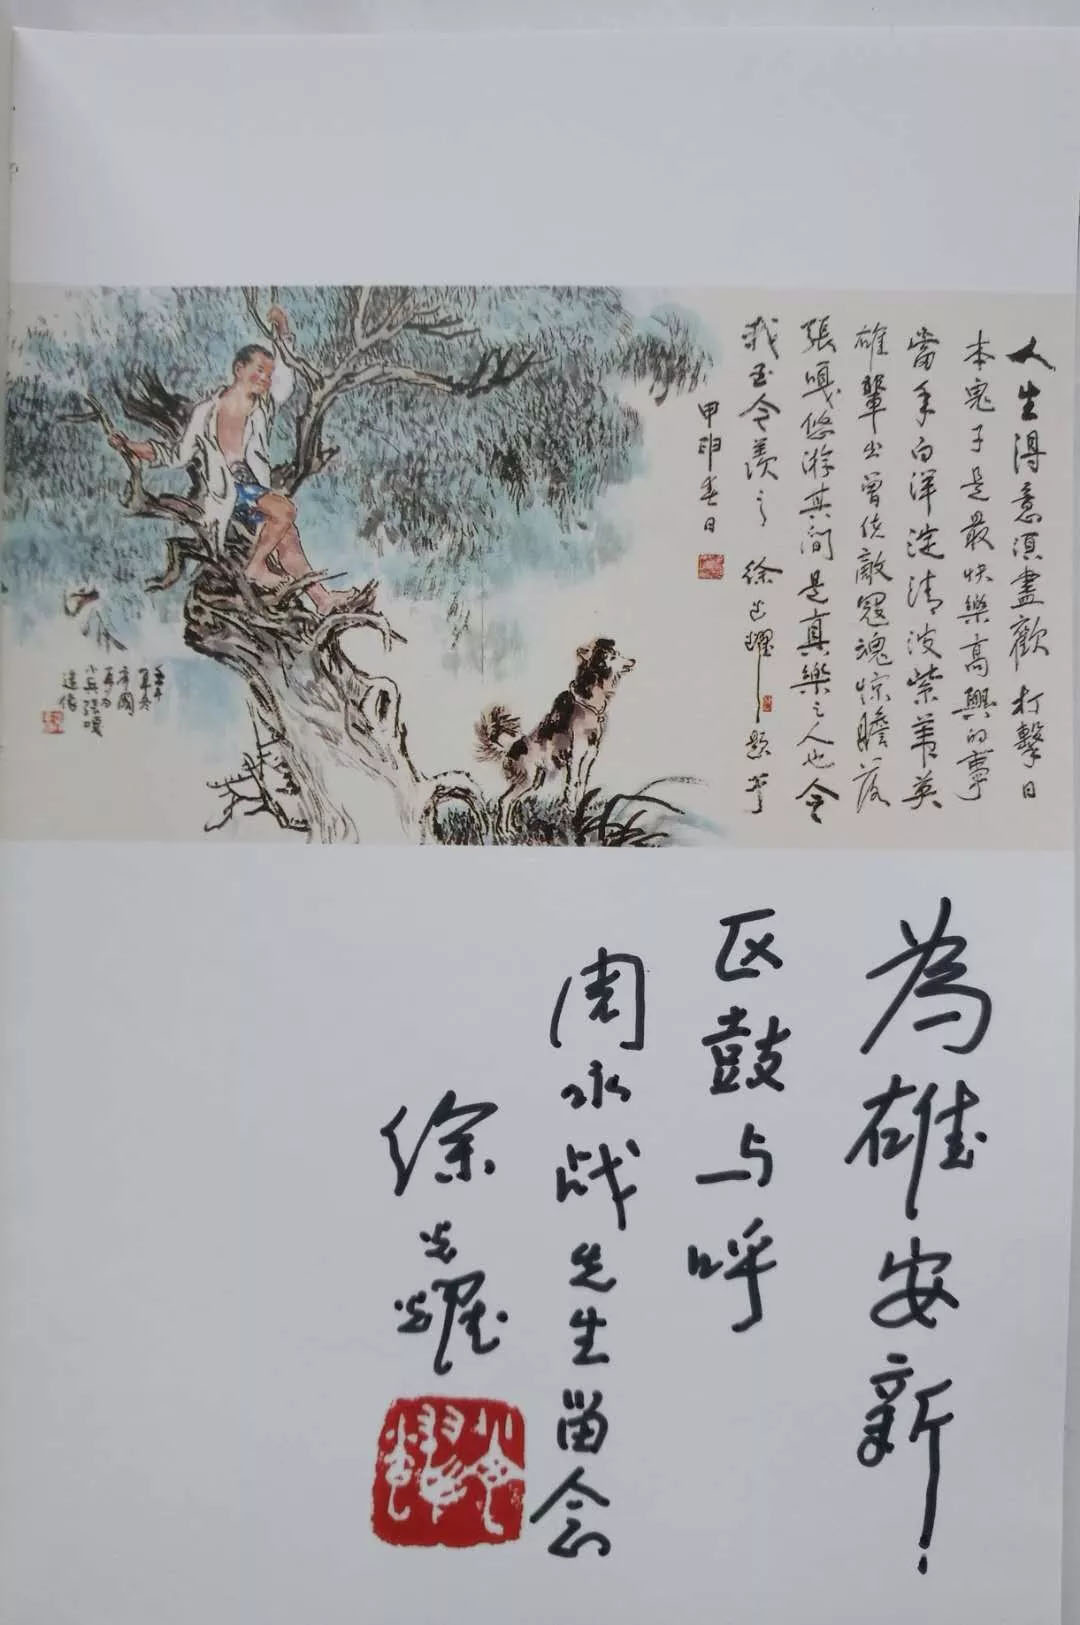 人生得意须盡歡打擊日
本鬼子是最快樂高興的事
當年白洋淀清波紫苇英
雄輩出曾使敵寇魂惊膽落
張嘎悠游其间是真樂之人也令
我至今羨之 徐光耀題
甲申春日
為雄安新
区鼓与呼
周永战先生留念
徐光耀